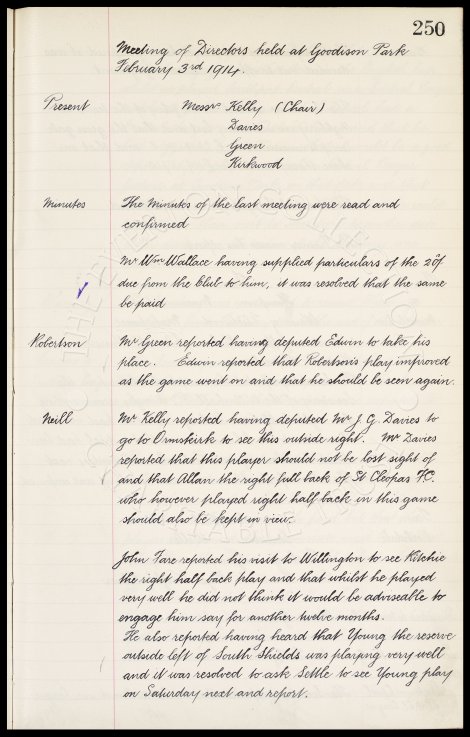 250
Meeting of Directors held at Goodison Park
February 3rd 1914.
Present Messrs Kelly (Chair)
Davies
Green
Kirkwood
Minutes The Minutes of the last meeting were read and
confirmed
Mr Wm Wallace having supplied particulars of the
due from the Club to him, it was resolved that the same
be paid
Robertson Mr Green reported having deputed Edwin to take his
place. Edwin reported that Robertson's play improved
as the game went on and that he should be seen again.
Neill Mr Kelly reported having deputed Mr J. G. Davies to
go to Ormskirk to see this outside right. Mr Davies
reported that this player should not be lost sight of
and that Allan the right full back of St Cleopas F.C.
who however played right half back in this game
should also be kept in view.
John Fare reported his visit to Willington to see Kitchie
the right half back play and that whilst he played
very well he did not think it would be adviseable to
engage him say for another twelve months.
He also reported having heard that Young the reserve
outside left of South Shields was playing very well
and it was resolved to ask Settle to see Young play
on Saturday next and report.